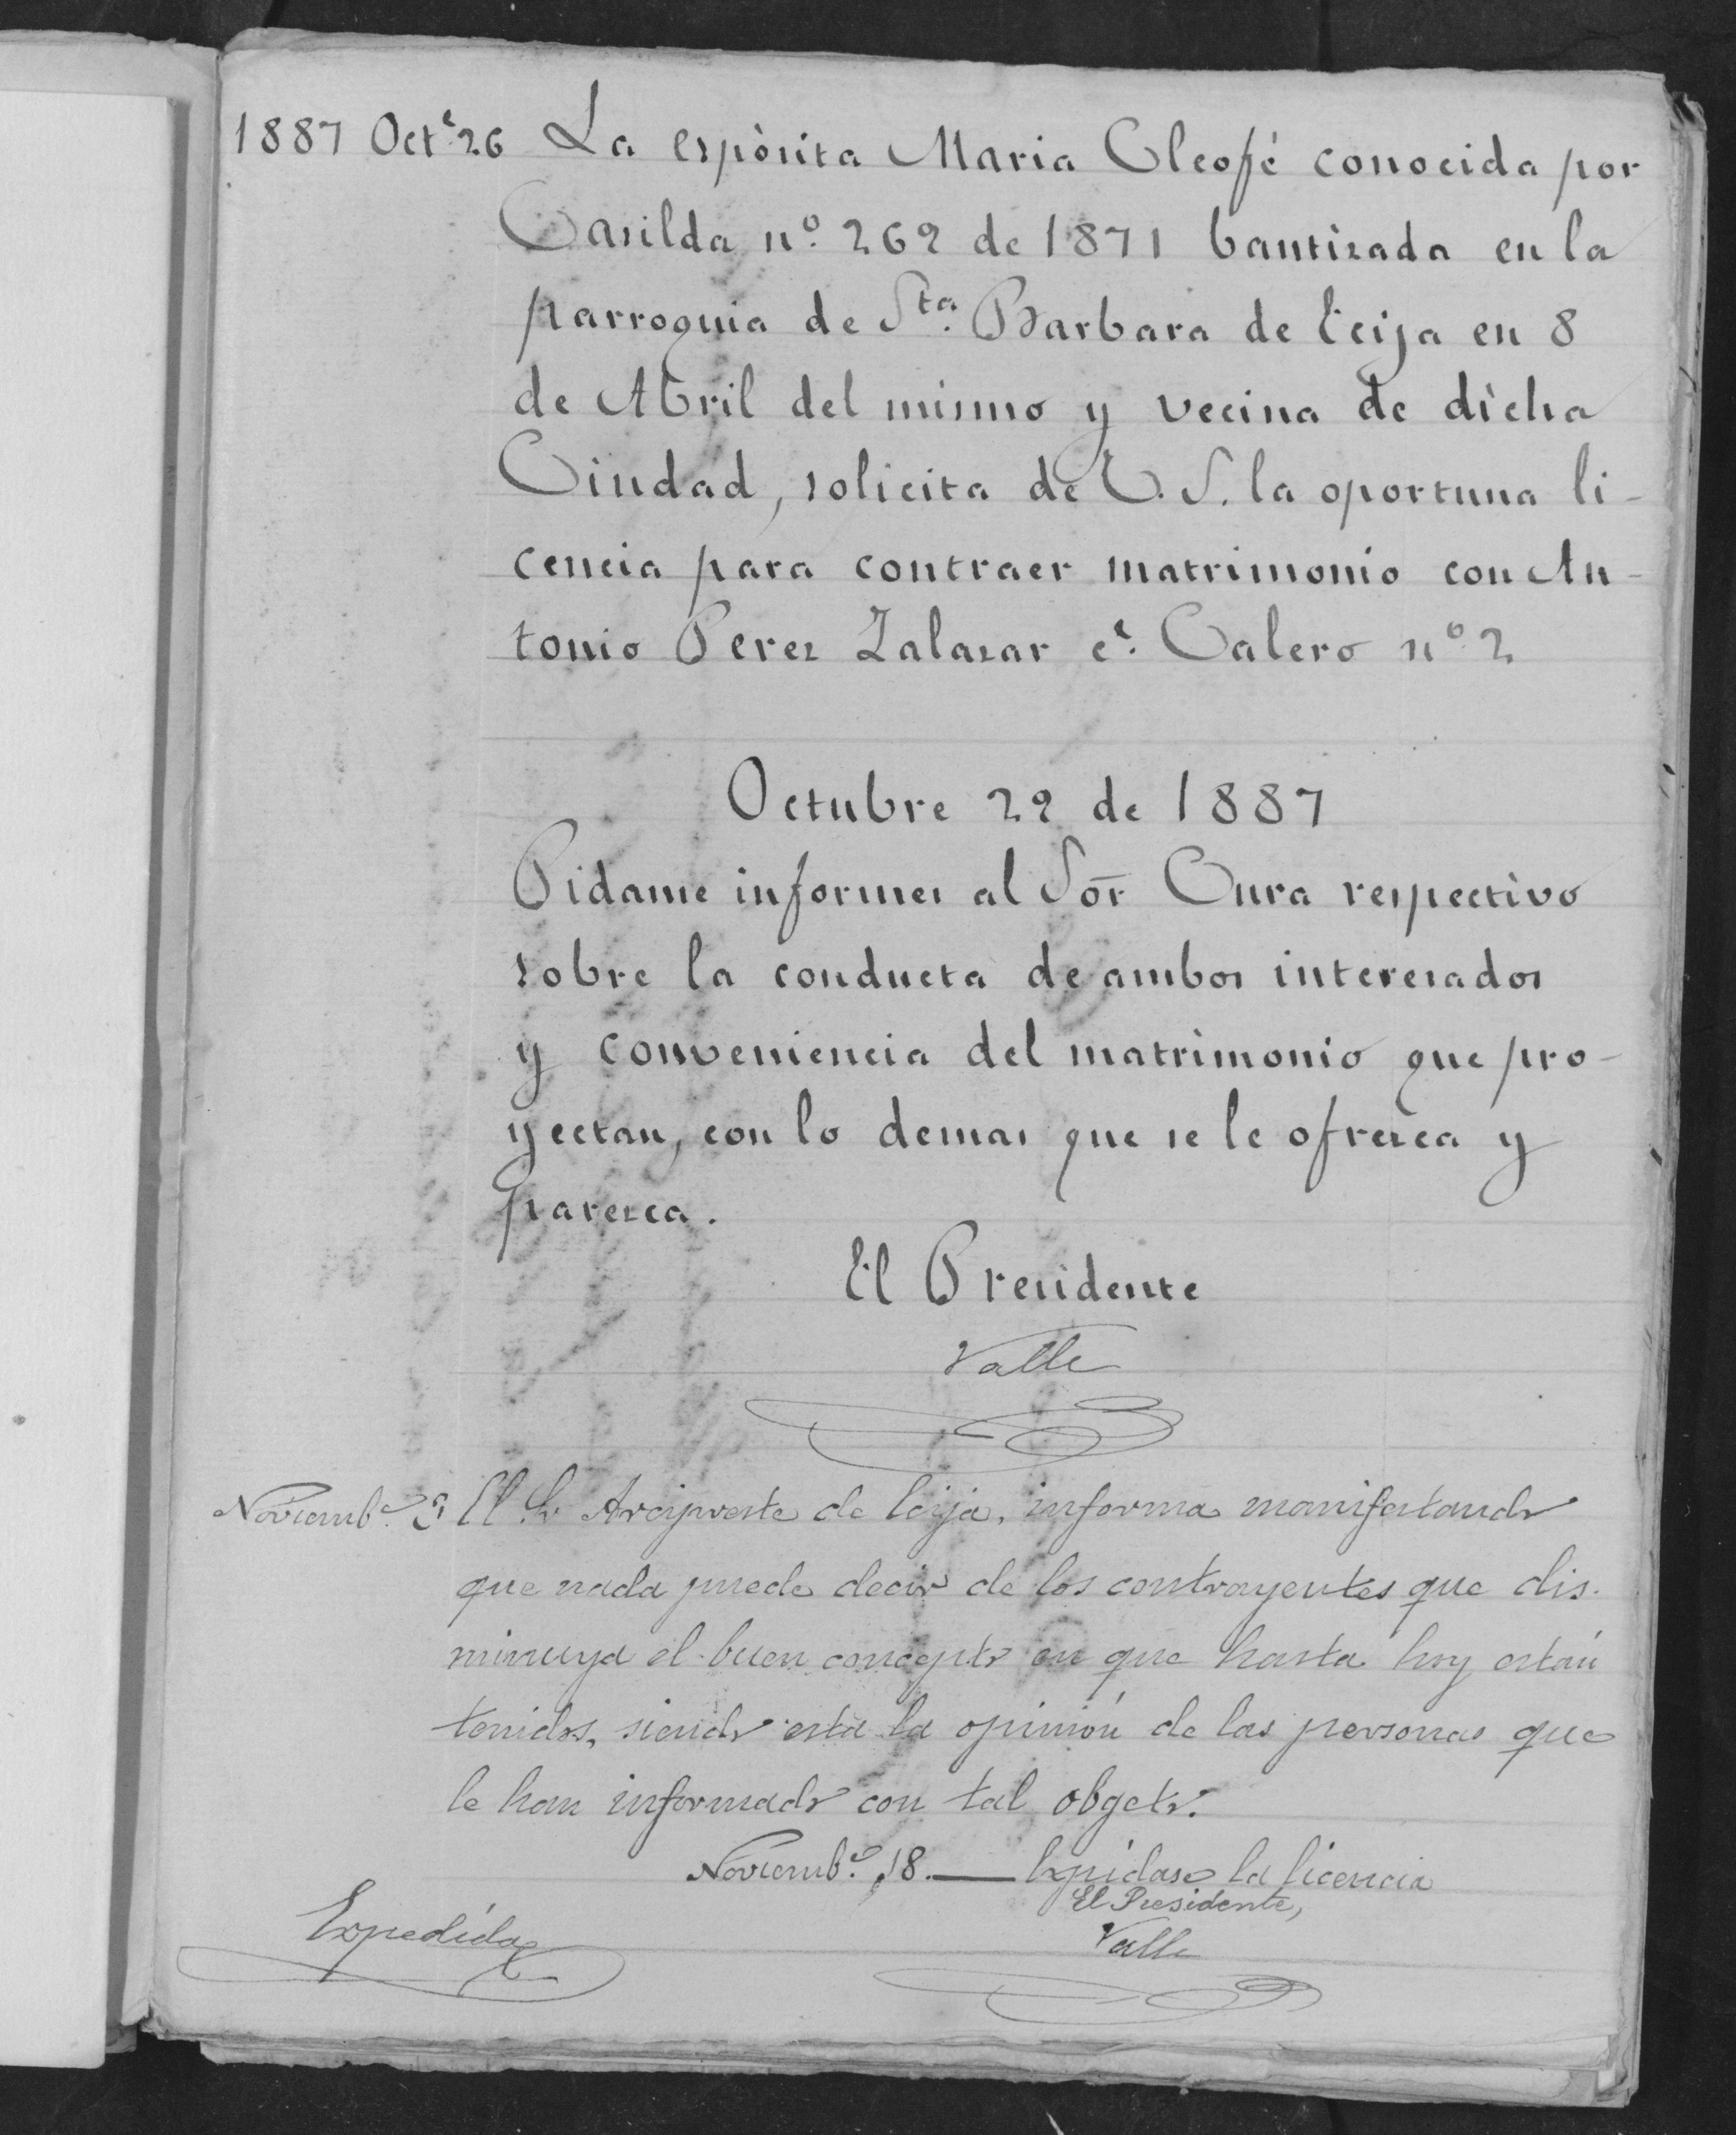 1887 Oct.e 26 La espòsita Maria Cleofé conocida por
Casilda nº. 269 de 1871 bautizada en la
parroquia de Sta. Barbara de Ecija en 8
de Abril del mismo y vecina de dicha
Ciudad, solicita de V.S. la oportuna li-
cencia para contraer matrimonio con An-
tonio Perez Zalazar ce. Calero nº 2
Octubre 29 de 1887
Pidanse informes al Sor Cura respectivo
sobre la conducta de ambos interesados
y conveniencia del matrimonio que pro-
yectan, con lo demas que se le ofrezca y
parezca.
El Presidente
Valle
Noviembe. 3 El Sr Arcipreste de Ecija, informa manifestando
que nada puede decir de los contrayentes que dis-
minuya el buen concepto en que hasta hoy están
tenidos, siendo esta la opinión de las personas que
le han informado con tal obgeto.
Noviembe. 18. — Expídase la licencia
El Presidente,
Valle
Expedida